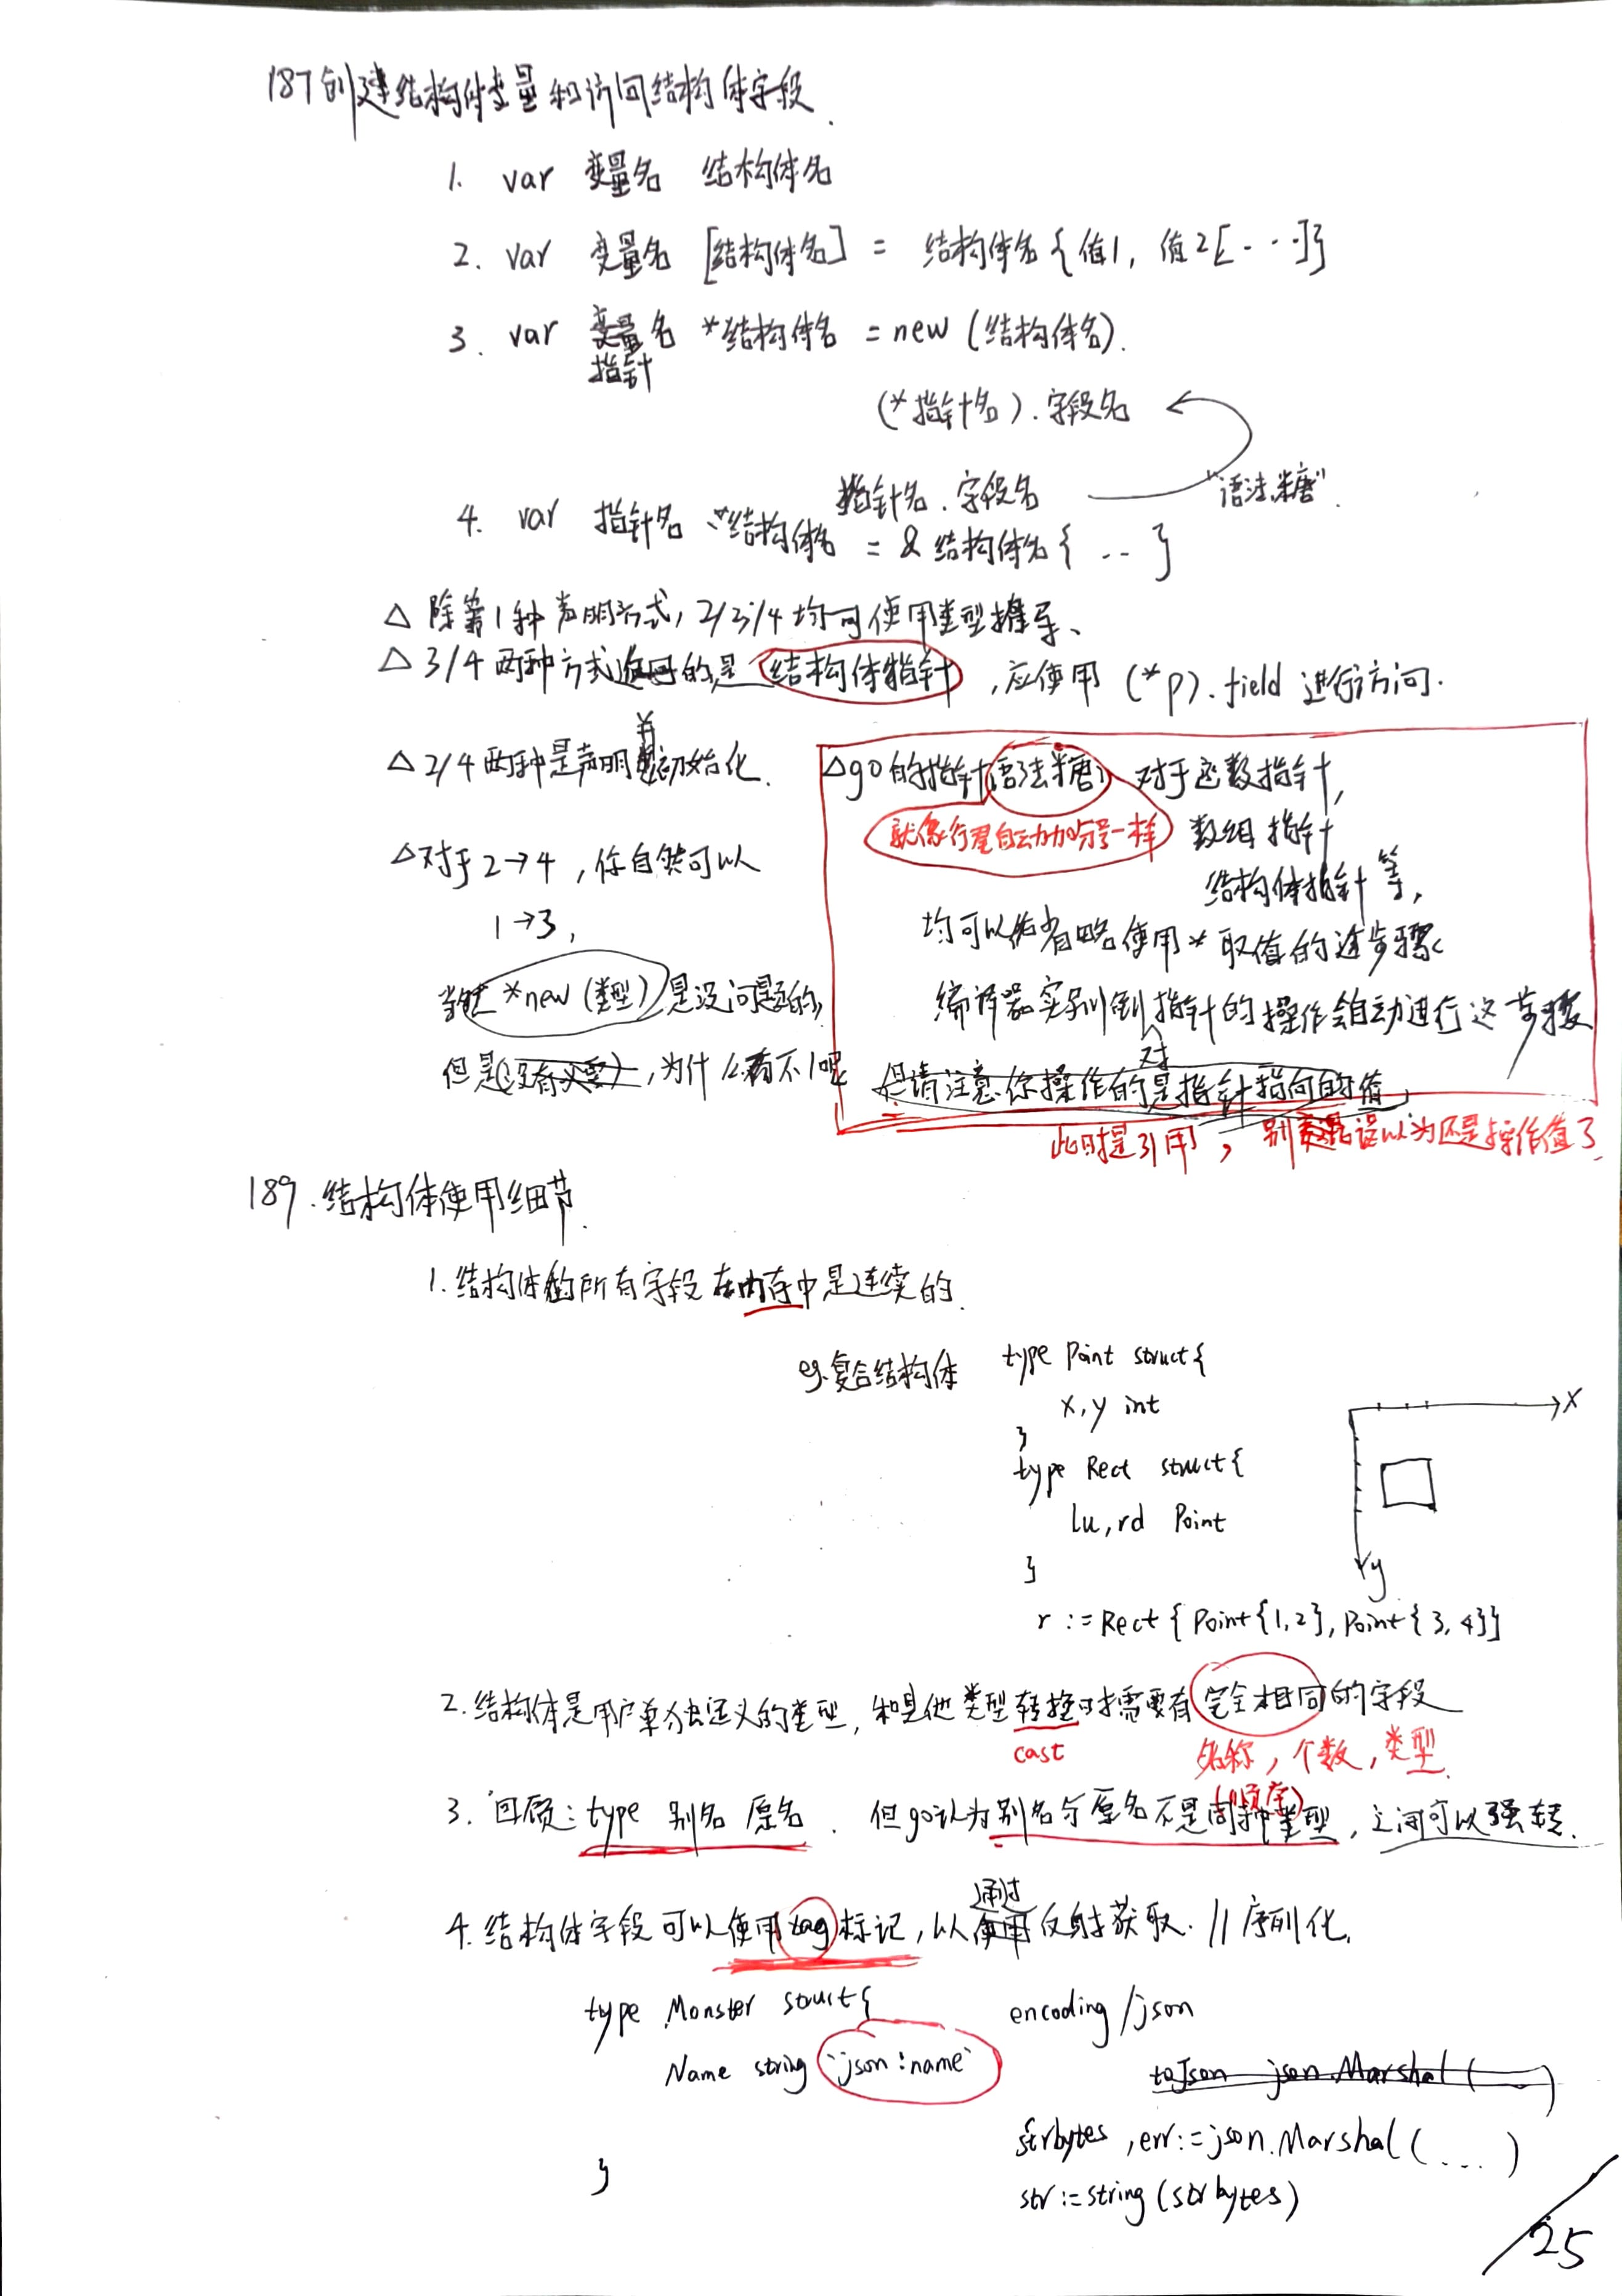 187 创建结构体变量和访问结构体字段.
1. var 变量名 结构体名
2. var 变量名 [结构体名] = 结构体名 { 值1, 值2[...]}
3. var 变量名 *结构体名 = new (结构体名).
指针
(*指针名).字段名
指针名.字段名 "语法糖".
4. var 指针名 *结构体名 = & 结构体名 { .. }
△ 除第1种声明方式, 2/3/4 均可使用类型推导、
△ 3/4 两种方式返回的是结构体指针, 应使用 (*p).field 进行访问.
△ 2/4 两种是声明并初始化.
△对于 2→4, 你自然可以
1→3,
*new (类型) 是没问题的,
但是(没有必要), 为什么不1呢
△go的指针语法糖: 对于函数指针,
就像行尾自动加分号一样 数组指针
结构体指针等,
均可以省略使用*取值的这步骤
编译器识别到对指针的操作会自动进行这步骤
但请注意你操作的是指针指向的值
此时是引用, 别误以为还是操作值了
189.结构体使用细节.
1.结构体的所有字段在内存中是连续的.
eg.复合结构体 type Point struct{
x,y int
}
type Rect struct{
lu,rd Point
}
r := Rect { Point{1,2}, Point{3,4}}
X
y
2.结构体是用户单独定义的类型, 和其他类型转换时需要有完全相同的字段
cast 名称, 个数, 类型.
(顺序)
3. 回顾: type 别名 原名. 但go认为别名与原名不是同种类型, 之间可以强转.
4.结构体字段可以使用tag标记, 以通过反射获取. // 序列化.
type Monster struct{
Name string `json:name`
}
encoding/json
toJson json.Marshal( )
strbytes, err:=json.Marshal(...)
str:=string(strbytes)
25